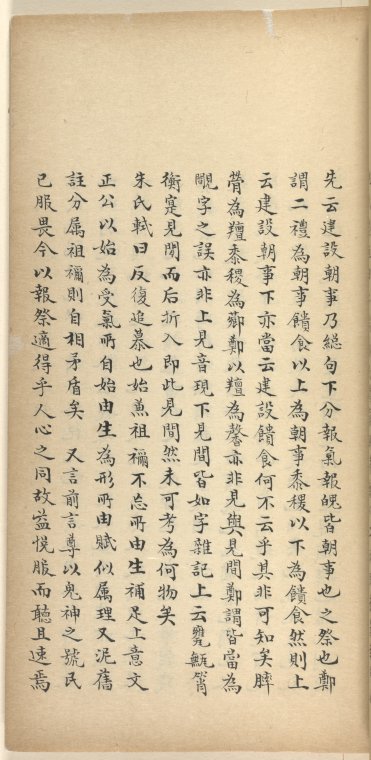 先云建設朝事乃總句下分報氣報魄皆朝事也之祭也鄭
謂二禮為朝事饋食以上為朝事黍稷以下為饋食然則上
云建設朝事下亦當云建設饋食何不云乎其非可知矣膟
膋為羶黍稷為薌鄭以羶為馨亦非見與見間鄭謂皆當為
覸字之誤亦非上見音現下見間皆如字雜記上云甕甒筲
衡寔見間而后折入即此見間然未可考為何物矣
朱氏軾曰反復追慕也始兼祖禰不忘所由生補足上意文
正公以始為受氣所自始由生為形所由賦似属理又泥舊
註分属祖禰則自相矛盾矣 又言前言尊以鬼神之號民
已服畏今以報祭適得乎人心之同故益悅服而聽且速焉